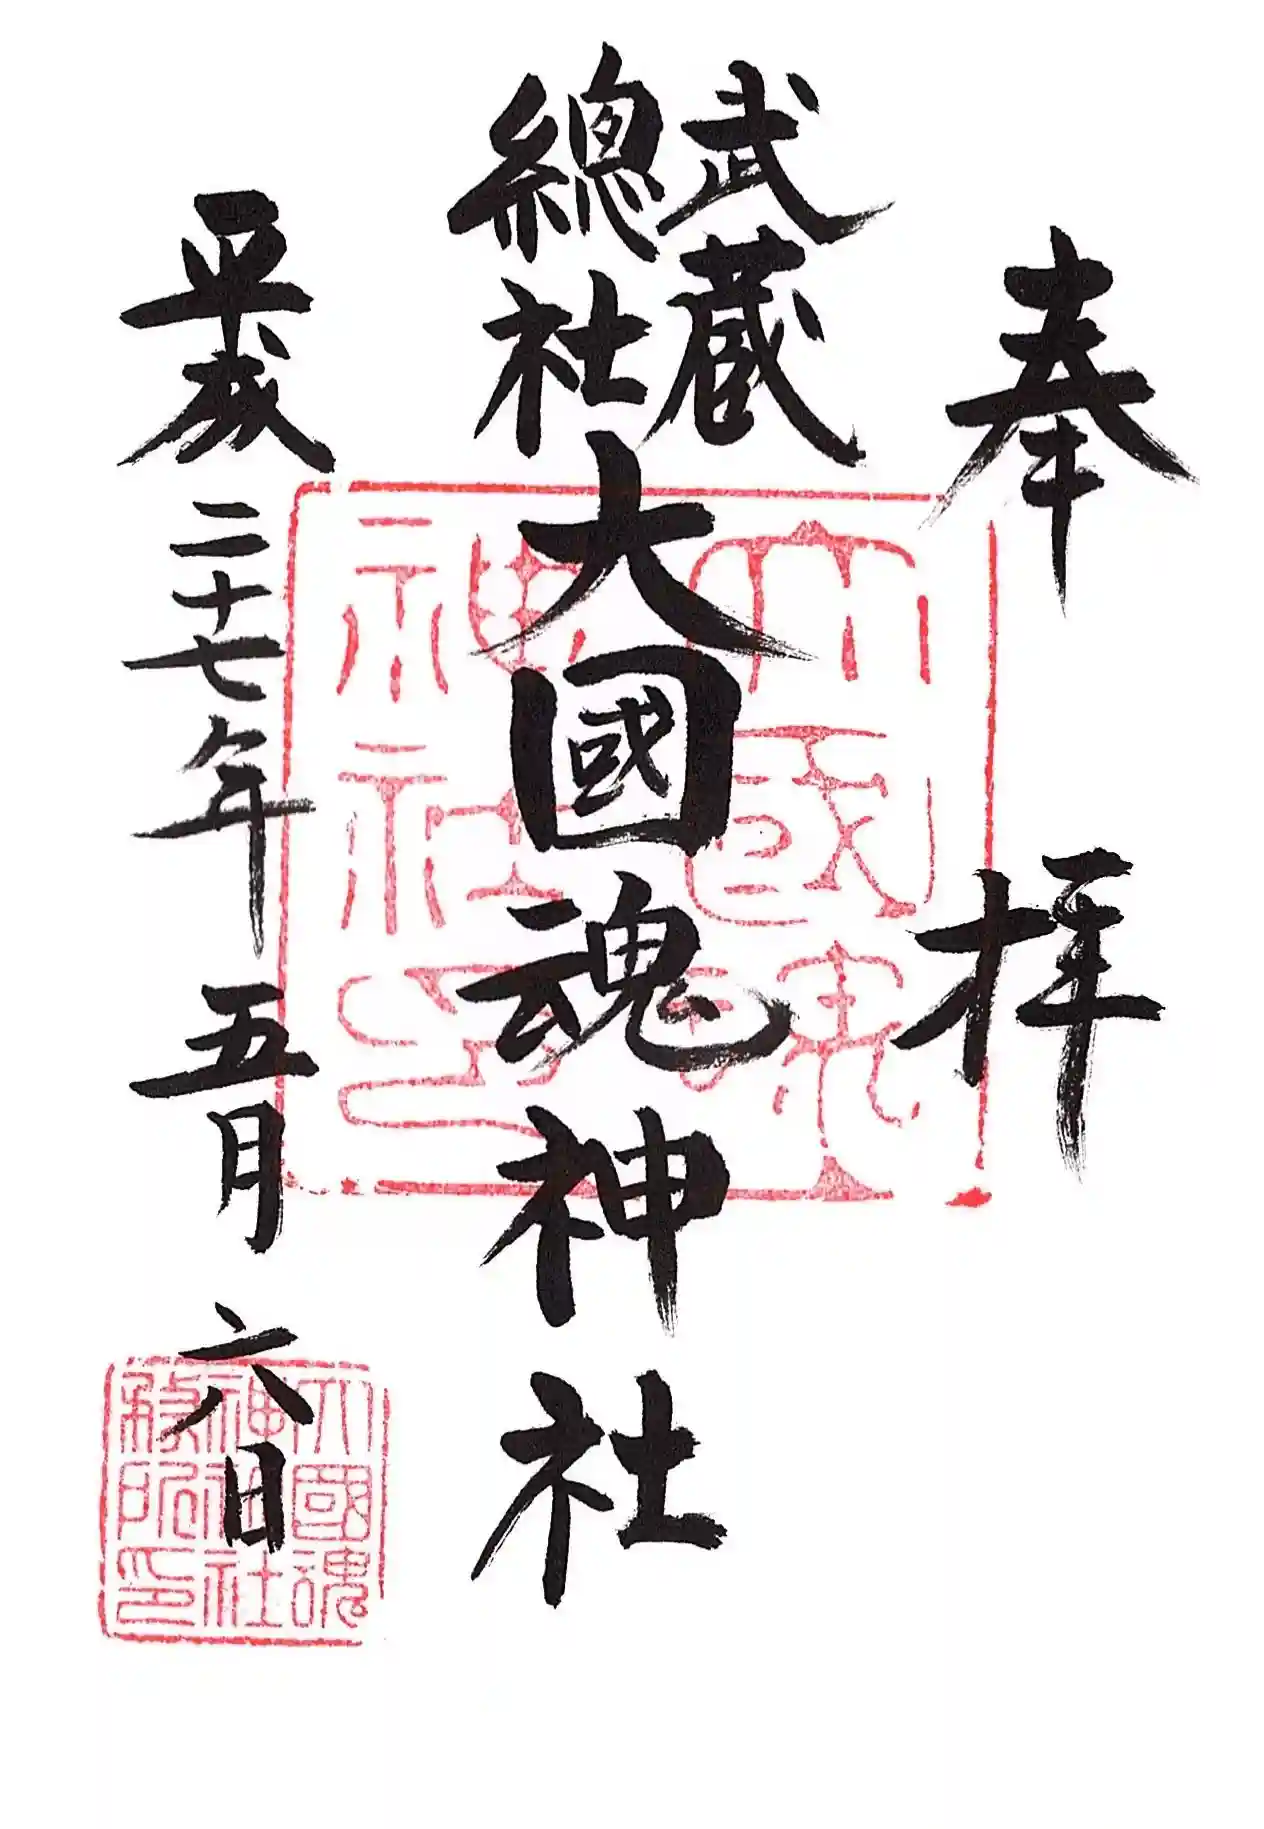 奉拝
武蔵
總社
大國魂神社
平成二十七年五月六日
大國魂
神社印
大國魂
神社社
務所印